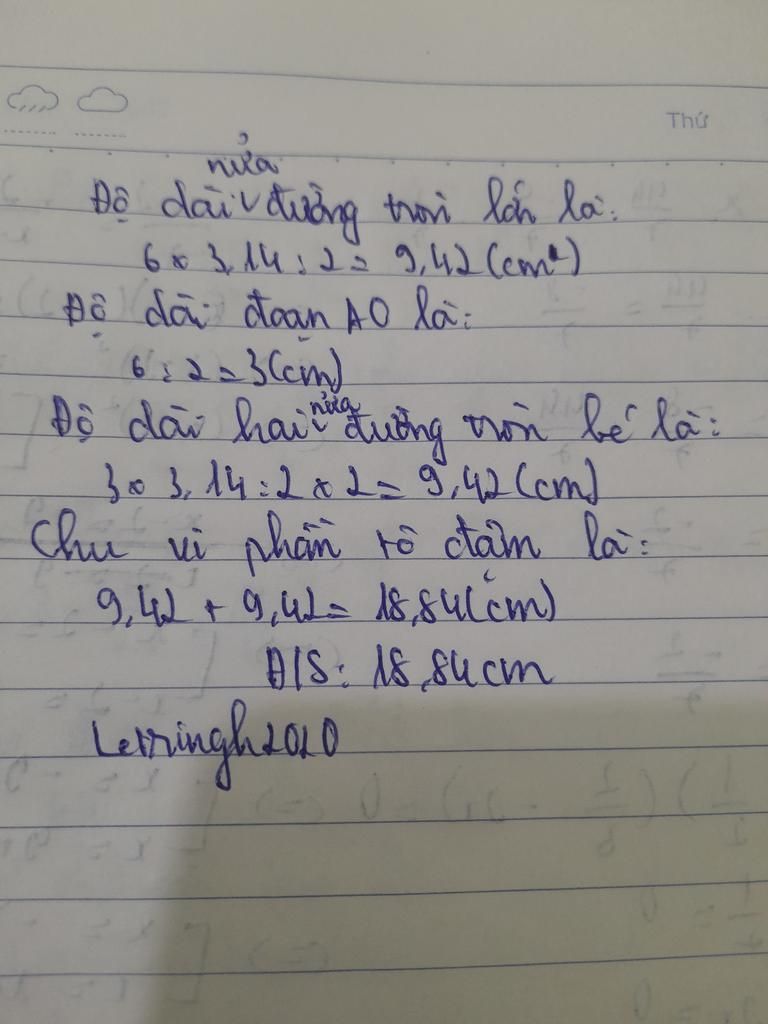 Thứ
nửa
Độ dài đường tròn lớn là:
6 x 3,14 : 2 = 9,42 (cm)
Độ dài đoạn AO là:
6 : 2 = 3 (cm)
nửa
Độ dài hai đường tròn bé là:
3 x 3,14 : 2 x 2 = 9,42 (cm)
Chu vi phần tô đậm là:
9,42 + 9,42 = 18,84 (cm)
Đ/S: 18,84 cm